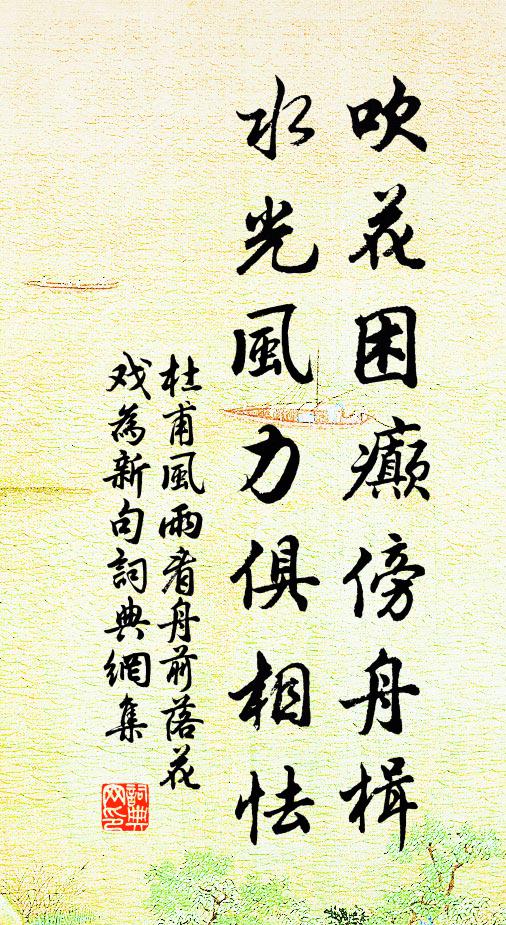 吹花困癲傍舟楫
水光風力俱相怯
杜甫風雨看舟前落花
戏為新句詞典網集
詞典
网印